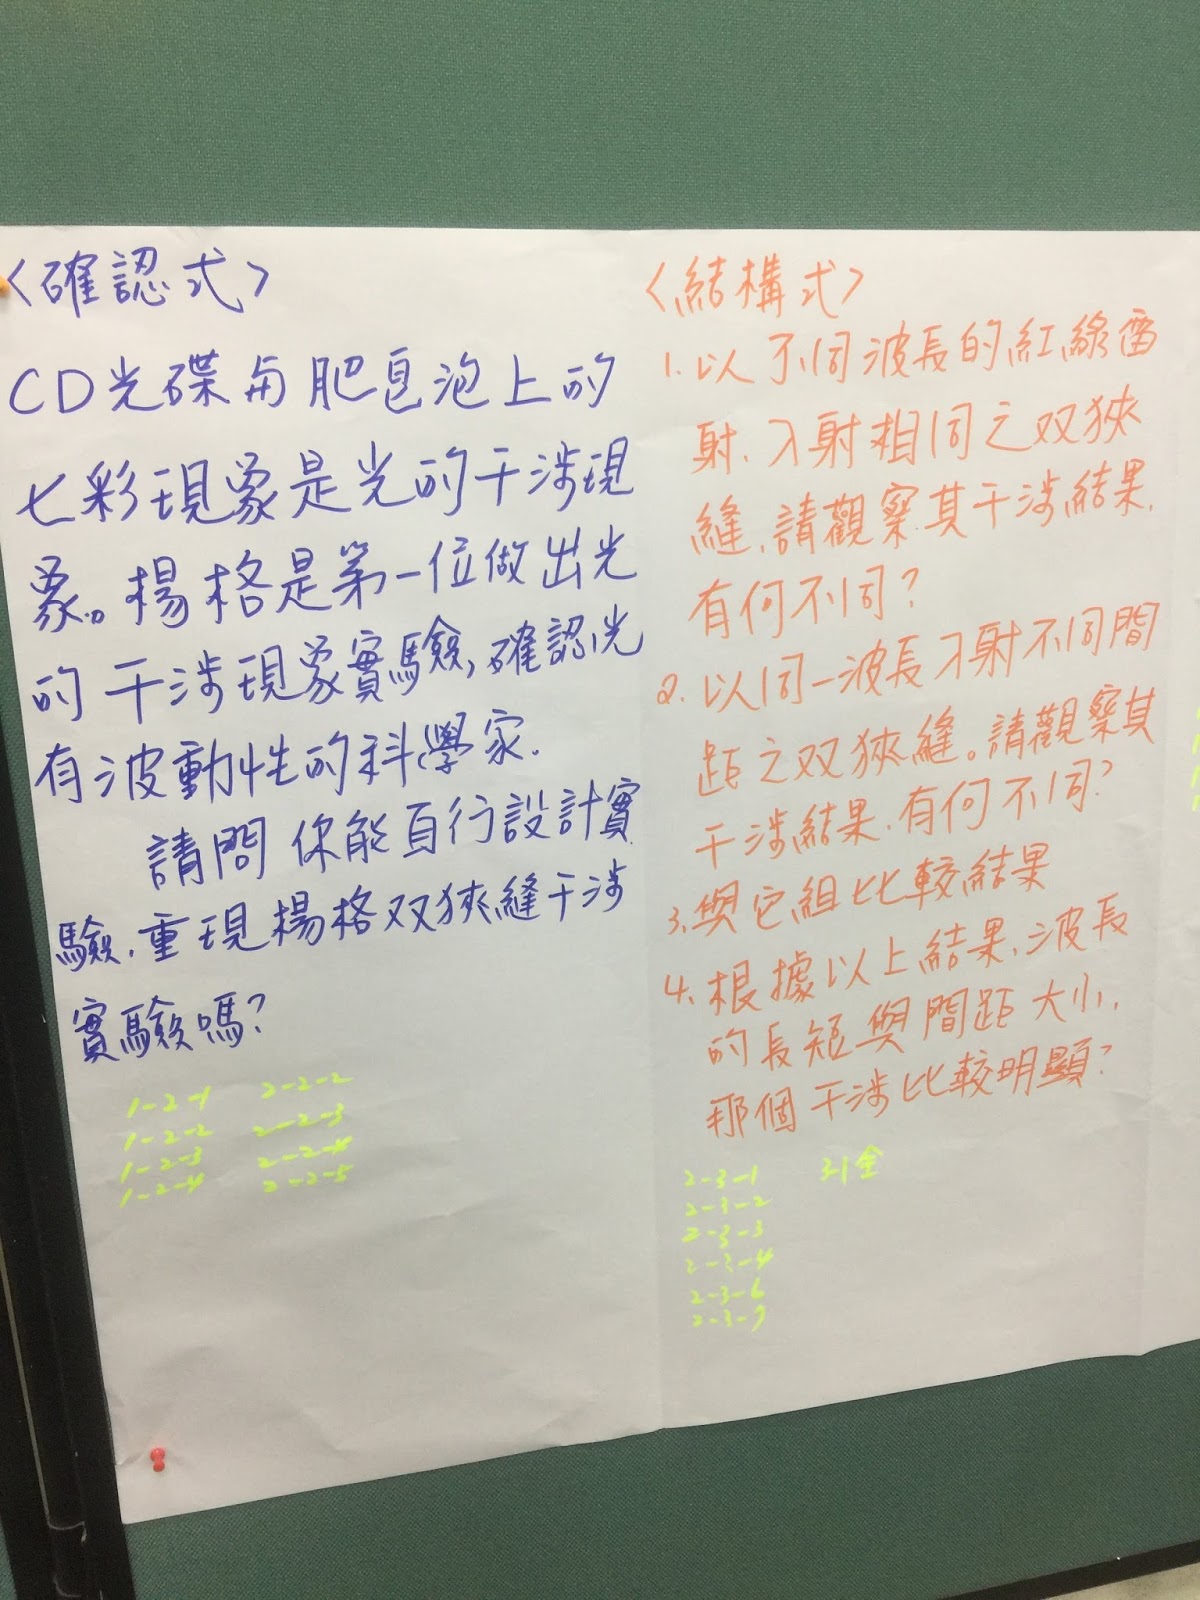 <確認式>
CD光碟与肥皂泡上的
七彩現象是光的干涉現
象。楊格是第一位做出光
的干涉現象實驗,確認光
有波動性的科學家.
請問你能自行設計實
驗.重現楊格双狹縫干涉
實驗嗎?
1-2-1
1-2-2
1-2-3
1-2-4
2-2-2
2-2-3
2-2-4
2-2-5
<結構式>
1.以不同波長的紅綠雷
射.入射相同之双狹
縫.請觀察其干涉結果.
有何不同?
2.以同一波長入射不同間
距之双狹縫。請觀察其
干涉結果.有何不同?
3.與它組比較結果
4.根據以上結果.波長
的長短與間距大小.
那個干涉比較明顯?
2-3-1
2-3-2
2-3-3
2-3-4
2-3-6
2-3-7
3-1全